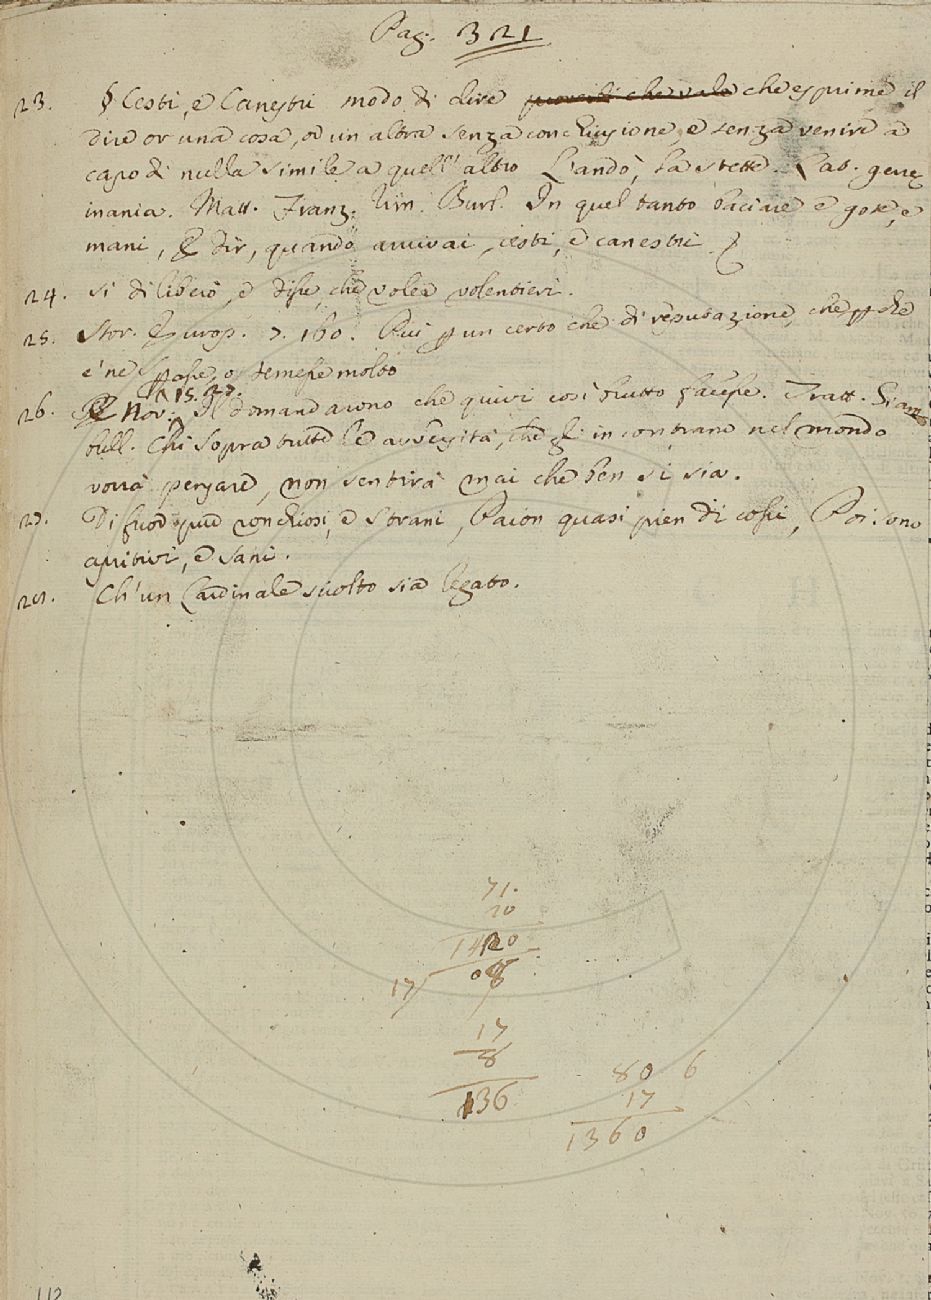 Pag. 321
23. § Cesti, e Canestri modo di dire proverbi che vale che esprime il
dire or una cosa, or un altra senza conclusione, e senza venire a
capo di nulla simile a quell' altro L'andò, la stette. Lab.
inania. Matt. Franz. Rim. Burl. In quel tanto baciare e gote, e
mani, E dir, quando arrivai, cesti, e canestri
24. si diliberò, e disse, che volea volentieri.
25. Stor. Europ. 7. 160. Qui un certo che di reputazione, che
e' ne o temesse molto
26. Nov. 15. 27. Il domandarono che quivi così brutto facesse. Tratt. Giam
bull. Chi sopra tutte le avversità, che gl' incontrano nel mondo
vorrà pensare, non sentirà mai che ben si sia.
27. Di fuor ronchiosi, e strani, Paion quasi pien di cossi, Poi sono
apritivi, e sani.
28. Ch' un Cardinale sciolto sia legato.
71.
20
1420
17 08
17
8
136
80 6
17
1360
112